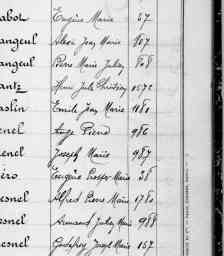 abot Eugène Marie 57
angeul Jean Marie 807
angeul Pierre Marie Julien 808
antz Jules Christian 1572
aslin Emile Jean Marie 1180
enel Ange Pierre 986
enel Joseph Marie 987
éro Eugène Prosper Marie 58
esnel Alfred Pierre Marie 1780
esnel Armand Jules Marie 988
esnel Godefroy Joseph Marie 157